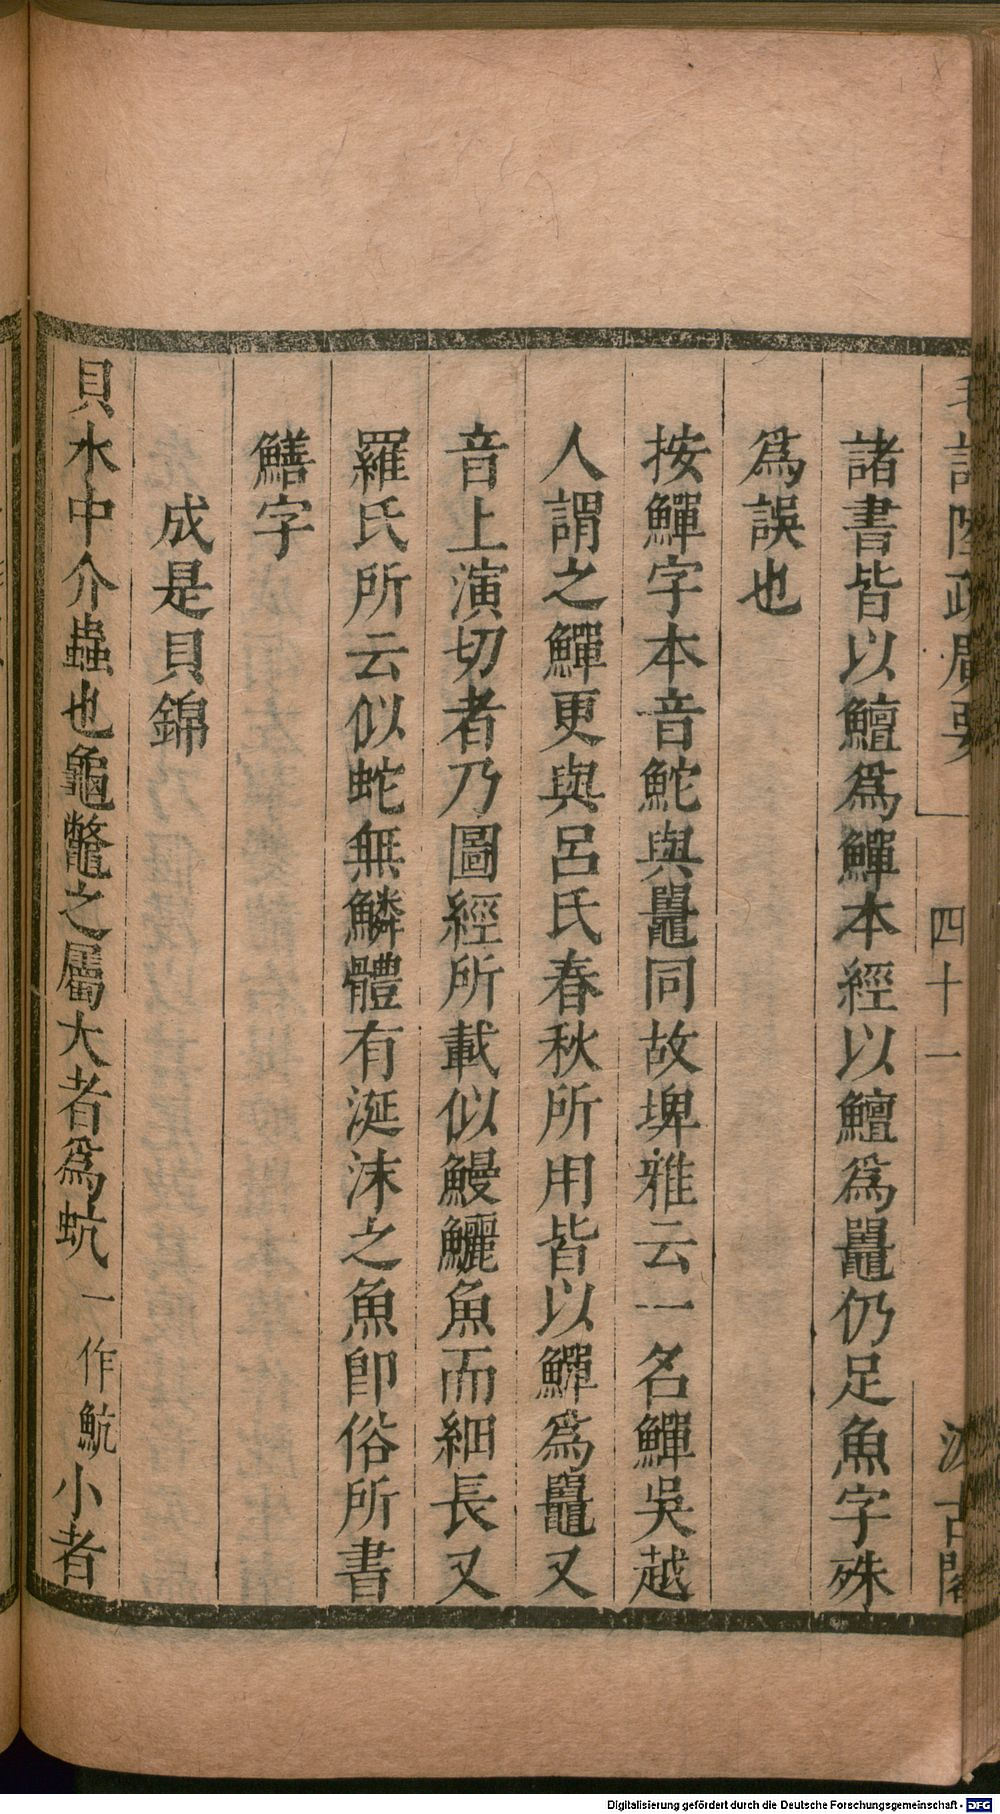 毛詩陸疏廣要
四十一
汲古閣
諸書皆以鱣爲鱓本經以鱣爲鼉仍足魚字殊
爲誤也
按鱓字本音鮀與鼉同故埤雅云一名鱓吳越
人謂之鱓更與呂氏春秋所用皆以鱓爲鼉又
音上演切者乃圖經所載似鰻鱺魚而細長又
羅氏所云似蛇無鱗體有涎沫之魚卽俗所書
鱔字
成是貝錦
貝水中介蟲也龜鼈之屬大者爲蚢一作魧小者
Digitalisierung gefördert durch die Deutsche Forschungsgemeinschaft - DFG